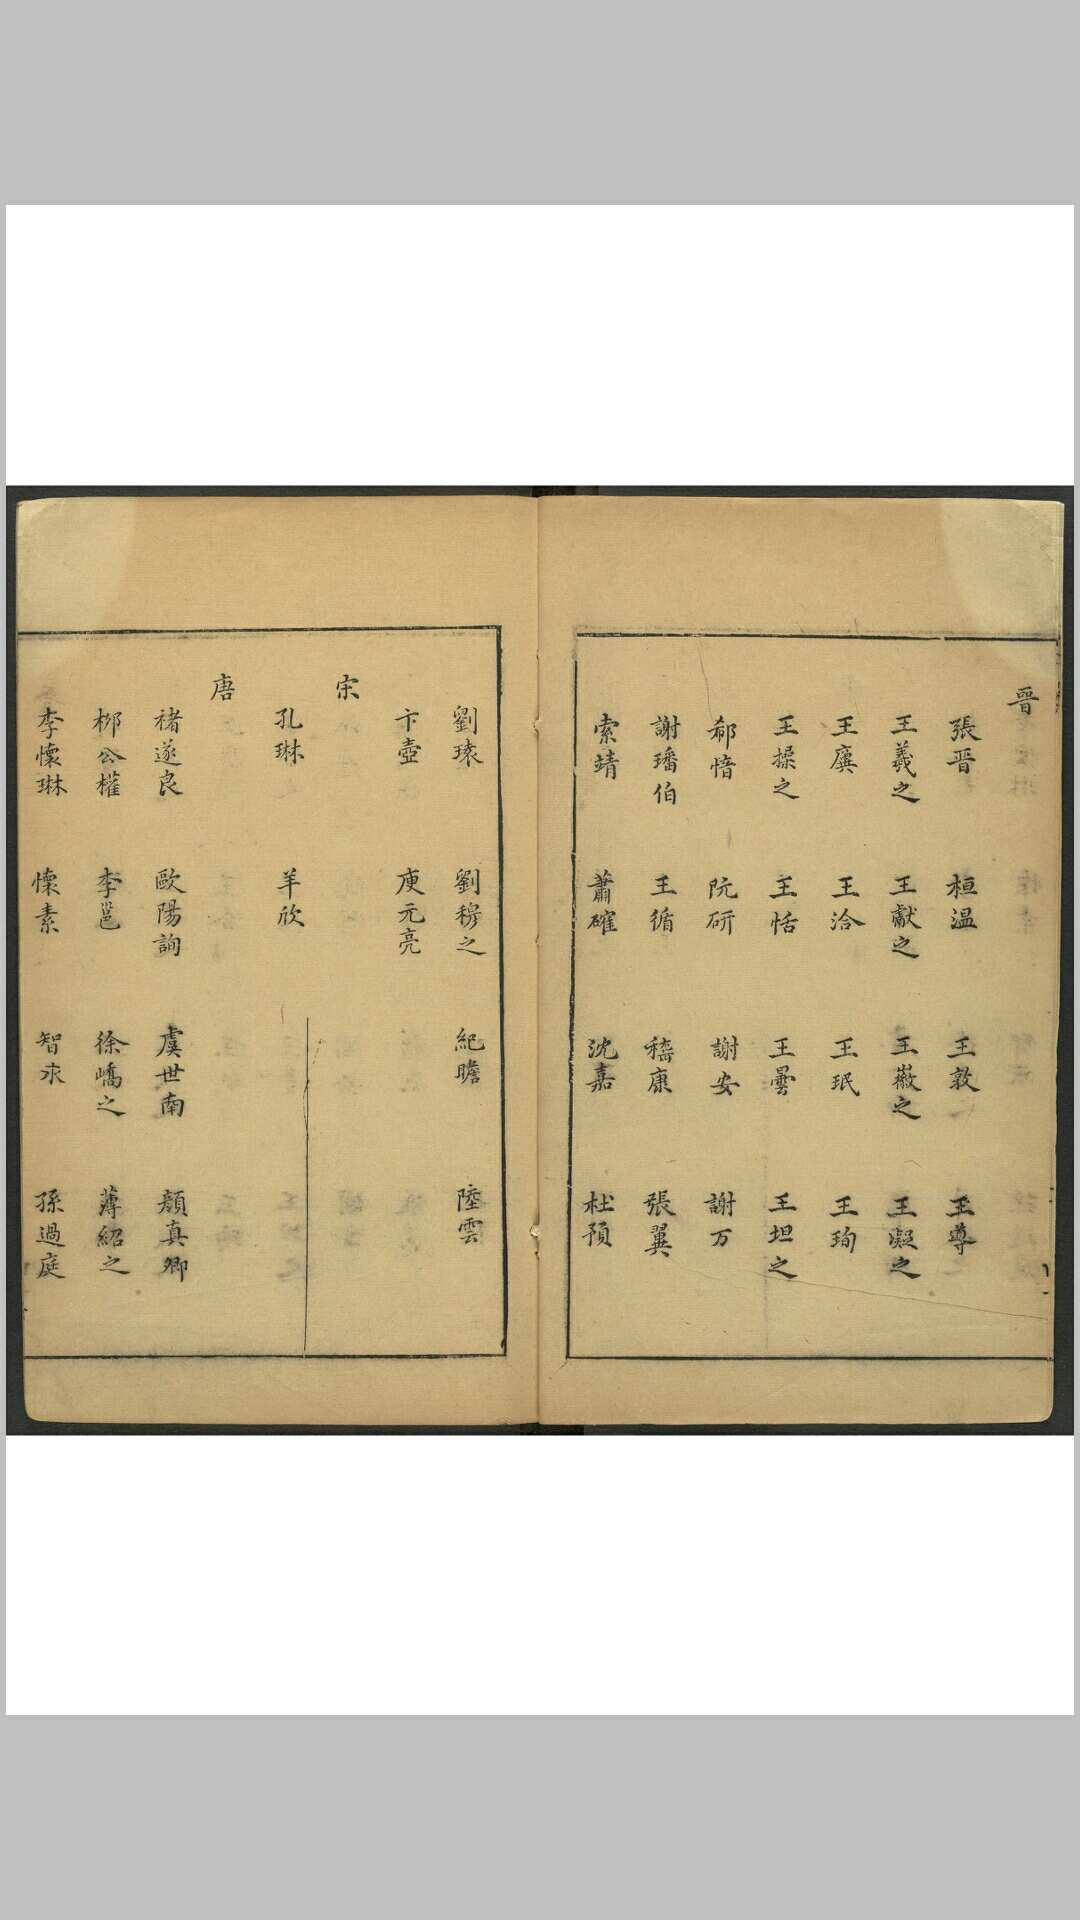 晉
張晋　桓温　王敦　王導
王羲之　王獻之　王薇之　王凝之
王廙　王洽　王珉　王珣
王操之　王恬　王曇　王坦之
郗愔　阮研　謝安　謝万
謝璠伯　王循　嵇康　張翼
索靖　蕭確　沈嘉　杜預
劉瓌　劉穆之　紀瞻　陸雲
卞壼　庾元亮
宋
孔琳　羊欣
唐
褚遂良　歐陽詢　虞世南　顔真卿
柳公權　李邕　徐嶠之　薄紹之
李懷琳　懷素　智永　孫過庭